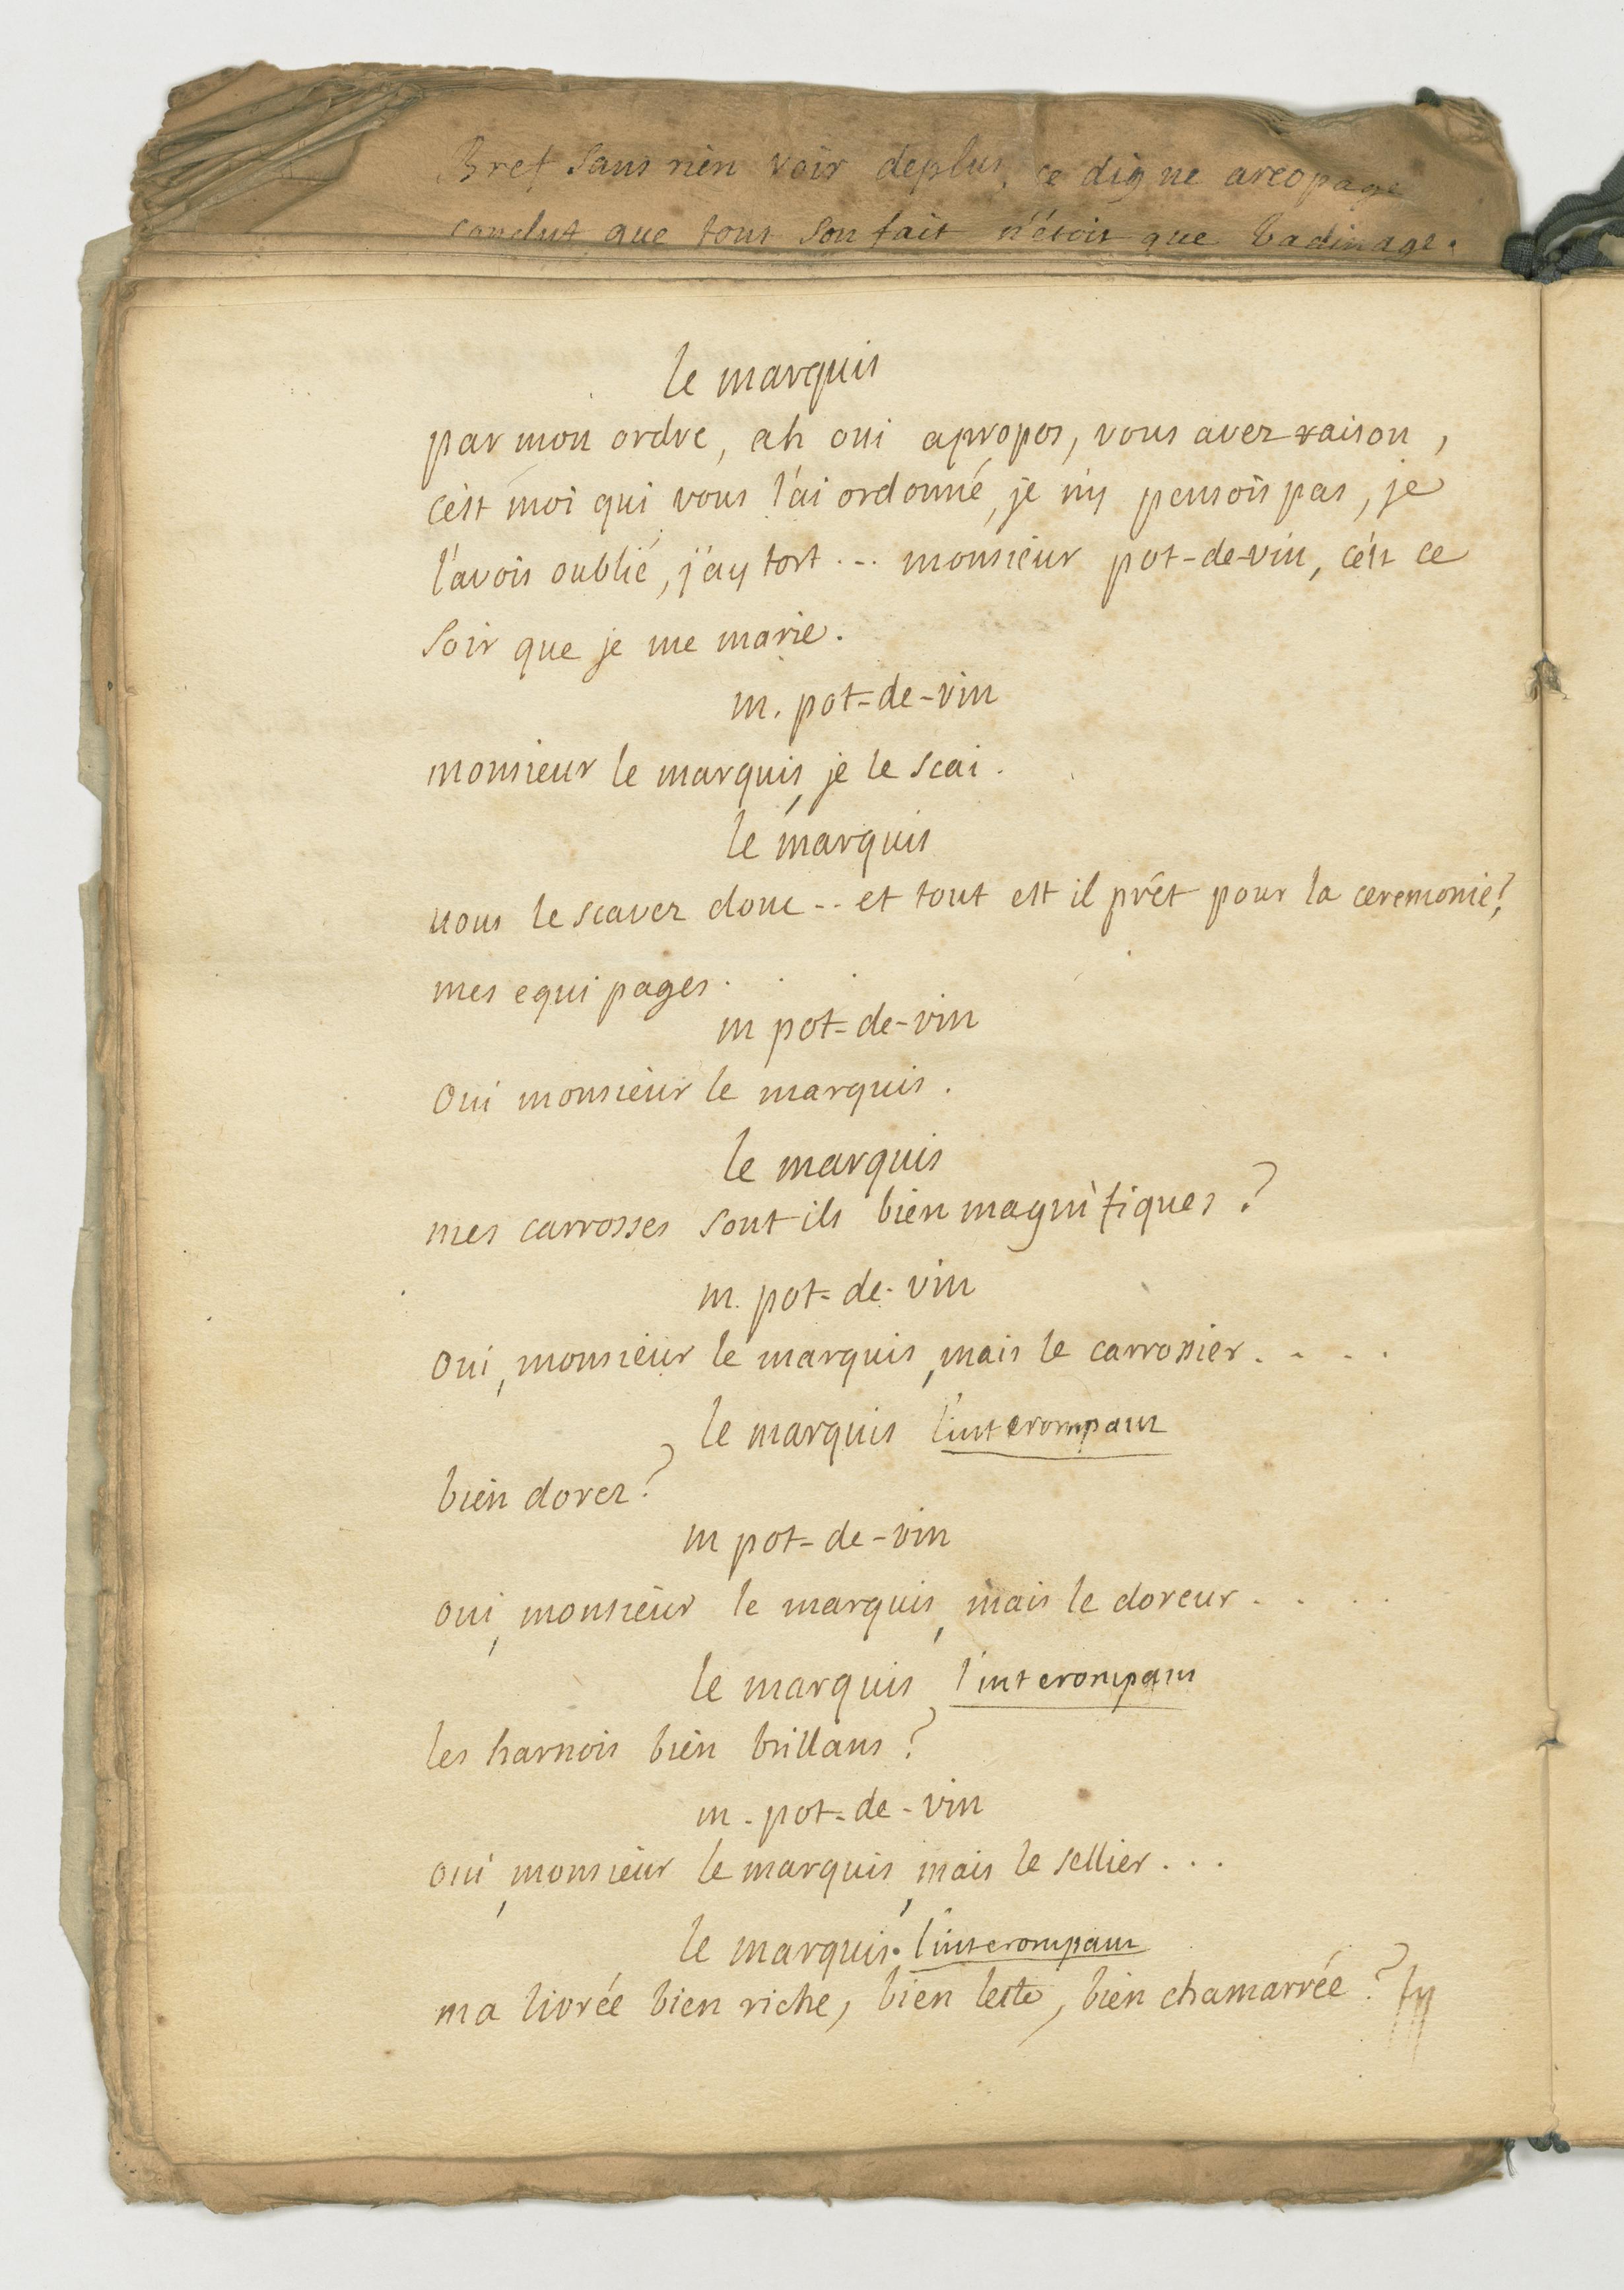 Bref sans rien voir deplus, ce digne areopage
conclut que tout son fait n'étoit que badinage.
le marquis
par mon ordre, ah oui apropos, vous avez raison,
c'est moi qui vous l'ai ordonné, je n'y pensois pas, je
l'avois oublié, j'ay tort... monsieur pot-de-vin, c'est ce
soir que je me marie.
m. pot-de-vin
monsieur le marquis, je le scai.
le marquis
vous le scavez donc.. et tout est il prêt pour la ceremonie?
mes equipages.
m pot-de-vin
Oui monsieur le marquis.
le marquis
mes carrosses sont ils bien magnifiques?
m. pot-de-vin
oui, monsieur le marquis, mais le carrossier....
le marquis l'interompant
bien dorez?
m pot-de-vin
oui, monsieur le marquis, mais le doreur....
le marquis, l'interompant
les harnois bien brillans?
m. pot-de-vin
oui, monsieur le marquis, mais le sellier...
le marquis. l'interompant
ma livrée bien riche, bien leste, bien chamarrée?